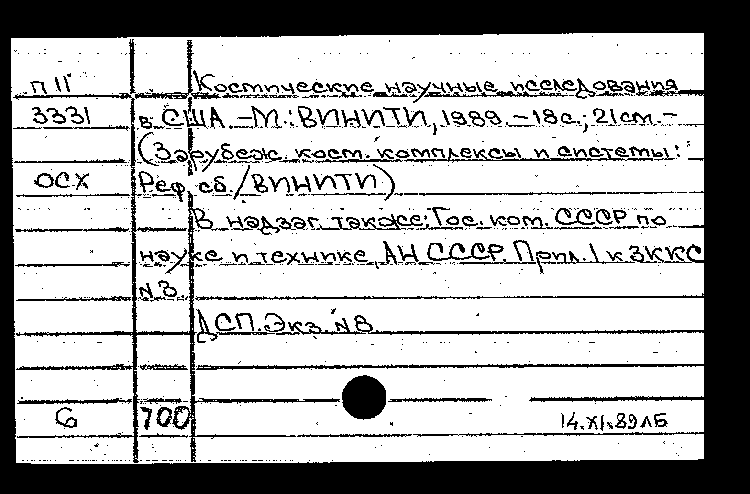 П 11 Космические научные исследования
3331 в США. - М.: ВИНИТИ, 1989. - 18 с.; 21 см. -
(Зарубеж. косм. комплексы и системы:
ОСХ Реф. сб. / ВИНИТИ)
В надзаг. также: Гос. ком. СССР по
науке и технике, АН СССР. Прил. 1 к ЗККС
N 3.
ДСП. Экз. N 8
6 700 14.XI.89 ЛБ